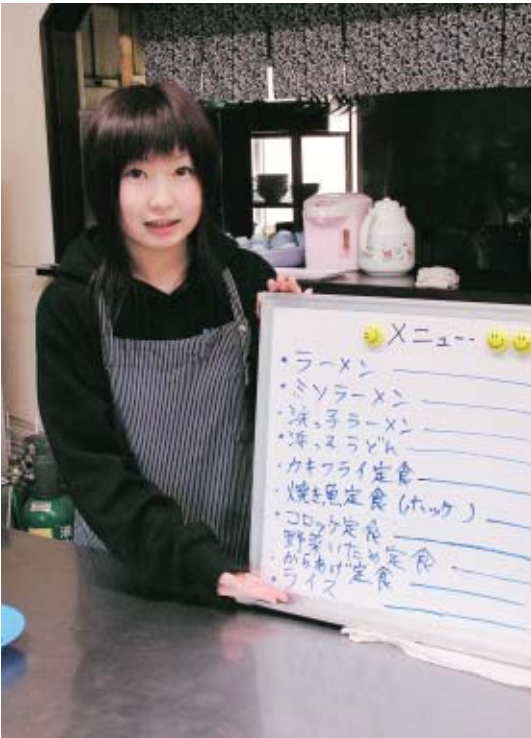 メニュー
・ラーメン
・ミソラーメン
・浜っ子ラーメン
・浜っ子うどん
・カキフライ定食
・焼き魚定食(ホッケ)
・コロッケ定食
野菜いため定食
・からあげ定食
・ライス